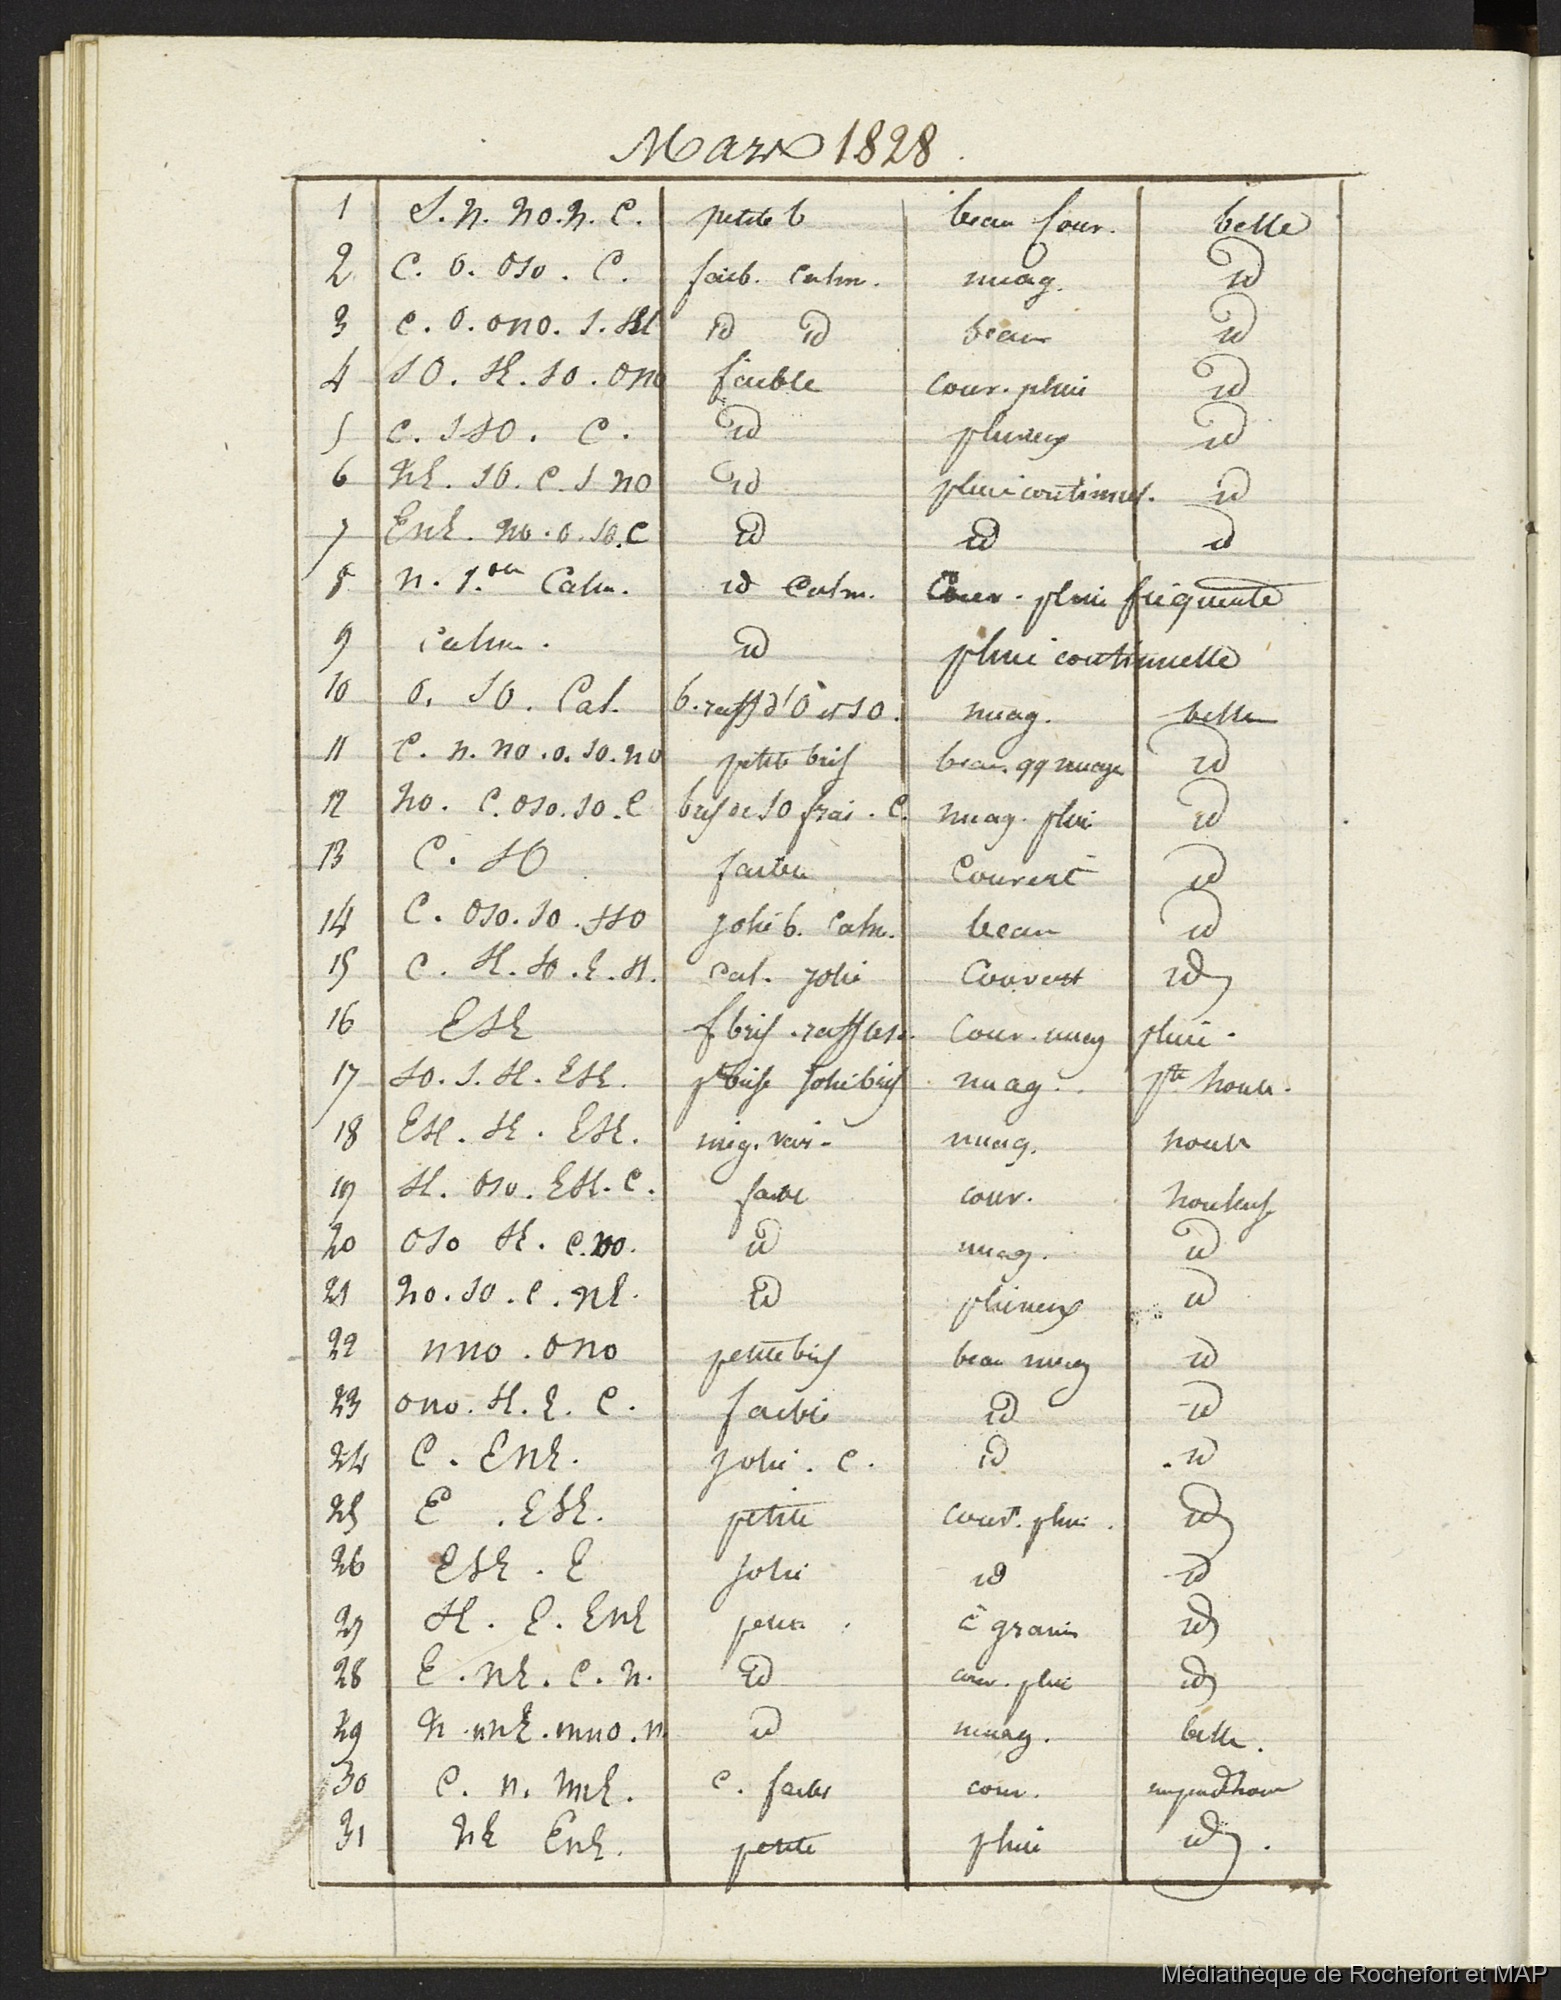 Mars 1828.
1 S. n. no. n. C. petite b beau Couv. belle
2 C. O. oso. C. faib. calm. nuag. id
3 C. O. ono. S. SE id id beau id
4 SO. SE. SO. ONO faible couv. pluie id
5 C. SSO. C. id pluvieux id
6 NE. SO. C. S NO id pluie continuel. id
7 ENE. no. o. so. C id id id
8 n. S. Calm. id Calm. Couv. pluie fréquente
9 calm. id pluie continuelle
10 O. SO. Cal. b. raff d'O et SO. nuag. belle
11 C. n. no. o. so. no petite bris beau qq nuages id
12 no. C. oso. so. C bris de SO frai. C. nuag. pluie id
13 C. SO faible Couvert id
14 C. OSO. SO. SSO jolie b. Calm. beau id
15 C. SE. SO. E. SE. Cal. jolie Couvert id
16 ESE f bris. raff Couv. nuag pluie.
17 SO. S. SE. ESE. pte brise jolie bris nuag. pte houle.
18 ESE. SE. ESE. nuag. houle
19 SE. OSO. ESE. C. faible couv. houleuse
20 OSO SE. C. NO. id nuag. id
21 no. so. C. NE. id pluvieux id
22 nno. ono petite bris beau nuag id
23 ono. SE. E. C. faible id id
24 C. ENE. jolie. C. id id
25 E. ESE. petite couvt. pluie. id
26 ESE. E jolie id id
27 SE. E. ENE petite à grains id
28 E. NE. C. N. id couv. pluie id
29 N. nnE. nno. n. id nuag. belle.
30 C. n. nnE. C. faible couv. un peu d houle
31 NE ENE. petite pluie id.
Médiathèque de Rochefort et MAP